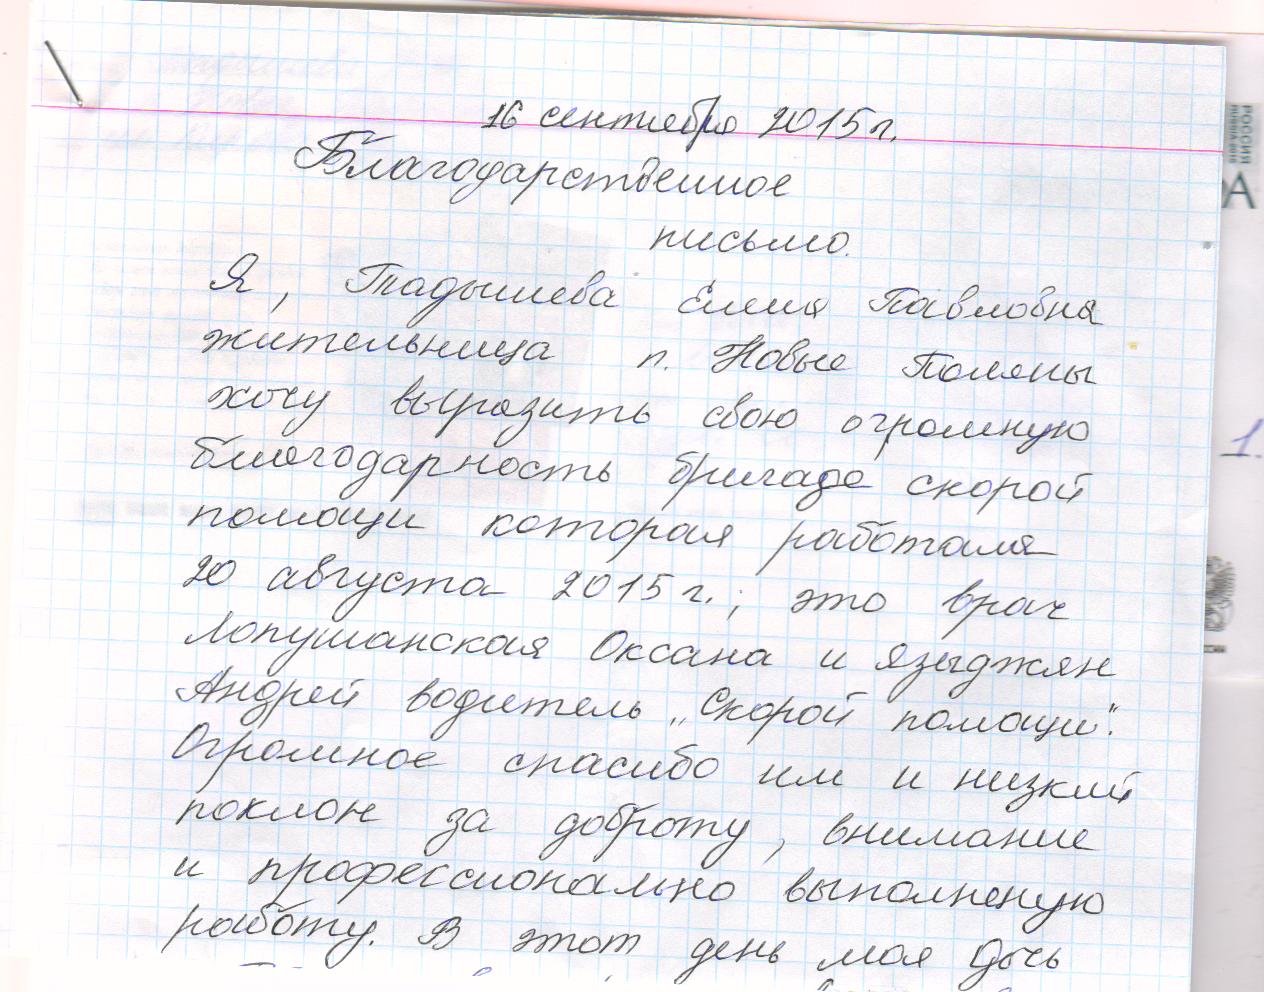 16 сентября 2015г.
Благодарственное
письмо.
Я, Тадышева Елена Павловна
жительница п. Новые Поляны
хочу выразить свою огромную
благодарность бригаде скорой
помощи которая работала
20 августа 2015г.; это врач
Лопушанская Оксана и Языджян
Андрей водитель „Скорой помощи".
Огромное спасибо им и низкий
поклон за доброту, внимание
и профессионально выполненую
работу. В этот день моя дочь
РОССИЯ
1.